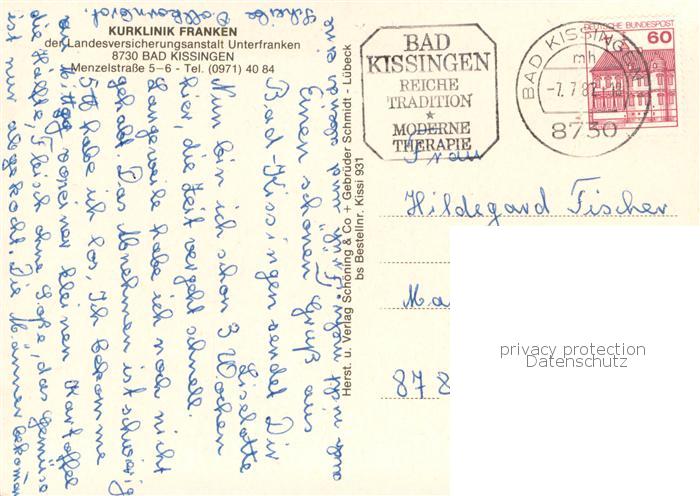 KURKLINIK FRANKEN
der Landesversicherungsanstalt Unterfranken
8730 BAD KISSINGEN
Menzelstraße 5–6 - Tel. (0971) 40 84
BAD
KISSINGEN
REICHE
TRADITION
*
MODERNE
THERAPIE
BAD KISSINGEN
mh
-7.7.82
8730
DEUTSCHE BUNDESPOST
60
Einen schönen Gruß aus
Bad-Kissingen sendet Dir
Liselotte
Nun bin ich schon 3 Wochen
hier, die Zeit vergeht schnell.
Langeweile habe ich noch nicht
gehabt. Das Abnehmen ist schwierig
5 habe ich los, Ich bekomme
Mittag von einer kleinen Kartoffel
die Hälfte, Fleisch ohne Soße, das Gemüse
ist nur abgekocht. Die Männer bekommen
Herst. u. Verlag Schöning & Co + Gebrüder Schmidt - Lübeck
bs Bestellnr. Kissi 931
Frau
Hildegard Fischer
Ma
878
privacy protection
Datenschutz